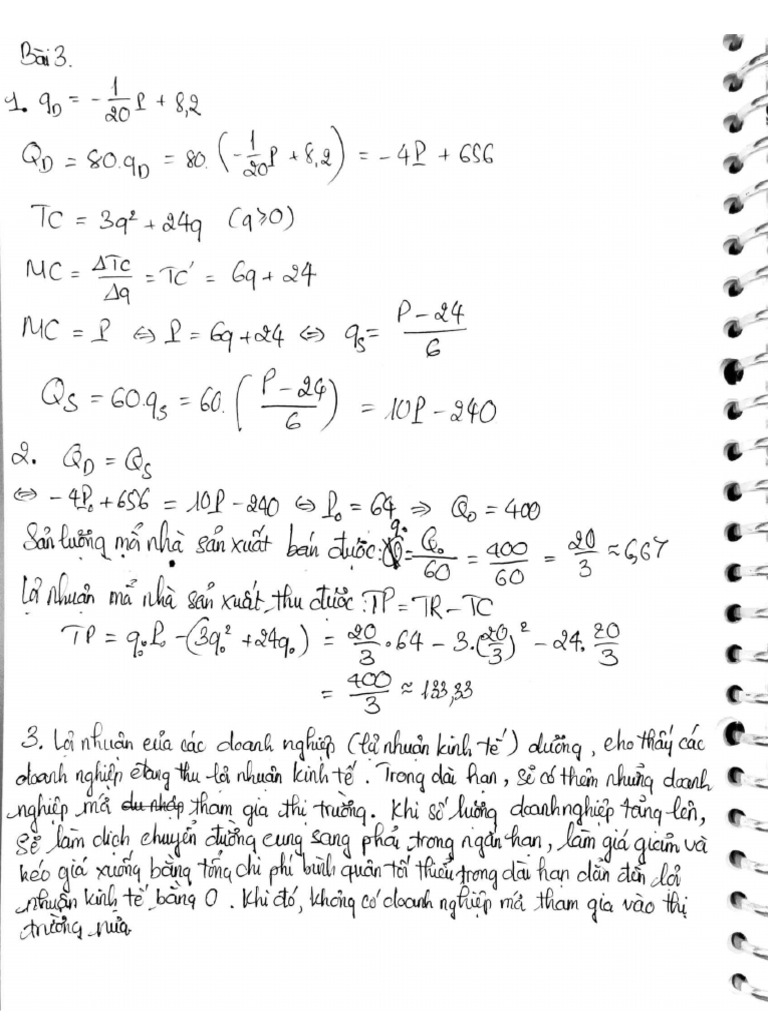 Bài 3.
1. q_D = -1/20 P + 8,2
Q_D = 80.q_D = 80.(-1/20 P + 8,2) = -4P + 656
TC = 3q² + 24q (q ≥ 0)
MC = ΔTC/Δq = TC' = 6q + 24
MC = P ⇔ P = 6q + 24 ⇔ q_S = (P - 24)/6
Q_S = 60.q_S = 60.((P - 24)/6) = 10P - 240
2. Q_D = Q_S
⇔ -4P₀ + 656 = 10P - 240 ⇔ P₀ = 64 ⇒ Q₀ = 400
Sản lượng mà nhà sản xuất bán được: q₀ = Q₀/60 = 400/60 = 20/3 ≈ 6,67
Lợi nhuận mà nhà sản xuất thu được: TP = TR - TC
TP = q₀.P₀ - (3q₀² + 24q₀) = 20/3 . 64 - 3.(20/3)² - 24. 20/3
= 400/3 ≈ 133,33
3. Lợi nhuận của các doanh nghiệp (lợi nhuận kinh tế) dương, cho thấy các
doanh nghiệp đang thu lợi nhuận kinh tế. Trong dài hạn, sẽ có thêm những doanh
nghiệp mới tham gia thị trường. Khi số lượng doanh nghiệp tăng lên,
sẽ làm dịch chuyển đường cung sang phải trong ngắn hạn, làm giá giảm và
kéo giá xuống bằng tổng chi phí bình quân tối thiểu trong dài hạn dẫn đến lợi
nhuận kinh tế bằng 0. Khi đó, không có doanh nghiệp mới tham gia vào thị
trường nữa.